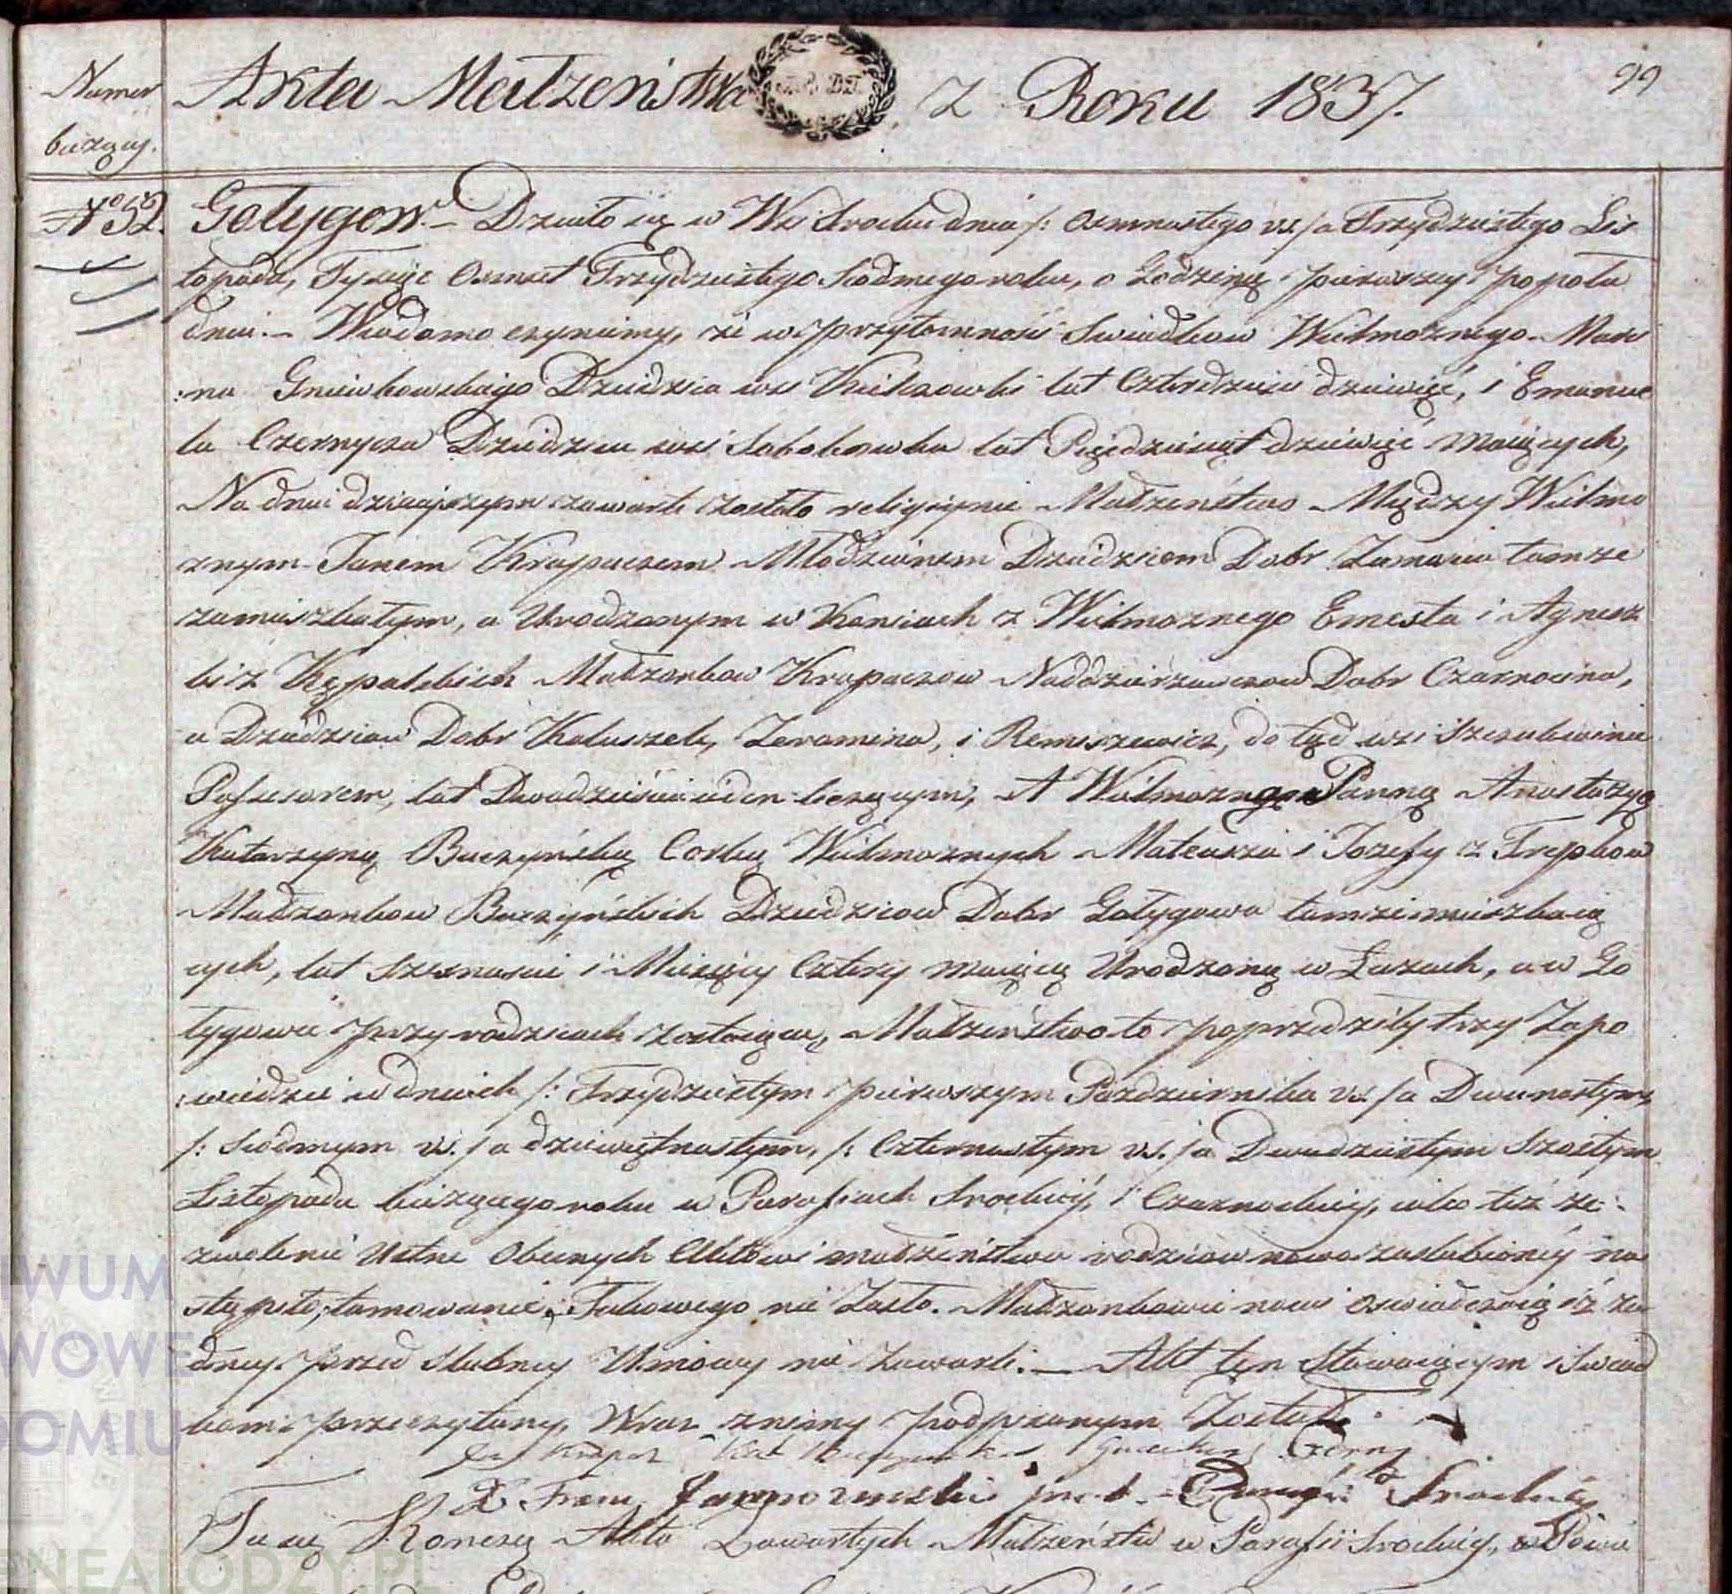 Numer
bieżący.
Akta Małżeństwa z Roku 1837.
99
No 52.
Gołygow. – Działo się w Wsi Srocku dnia /: Osmnastego v.s. /a Trzydziestego Lis
topada, Tysiąc Osmset Trzydziestego Siodmego roku, o Godzinę pierwszey popołu
dniu. – Wiadomo czyniemy, że w przytomności Swiadkow Wielmożnego Mar
:na Gniewkowskiego Dziedzica wsi lat Czterdzieści dziewięć, i Emanue
la Czernycza Dziedzica wsi Sobolewka lat Pięćdziesiąt dziewięć maiących,
Na dniu dzisiejszym zawarte zostało religijnie Małżeństwo Między Wielmo
żnym Janem Krapaczem Młodzianem Dziedzicem Dobr Zamoscia tamże
zamieszkałym, a Urodzonym w Koniach z Wielmożnego Ernesta i Agniesz
ki z Kępalskich Małżonkow Krapaczow Naddzierżawcow Dobr Czarnocina,
a Dziedzicow Dobr Kaluszek, Zeromina, i Remiszewice, do tąd wsi Szczukwina
Possesorem, lat Dwadzieścia ieden liczącym, A Wielmożną Panną Anastazyą
Katarzyną Buczyńską Corką Wielmożnych Mateusza i Jozefy z Trepkow
Małżonkow Buczyńskich Dziedzicow Dobr Gołygowa tamże mieszkaią
cych, lat szesnascie i Miesięcy Cztery maiącą Urodzoną w Łazach, a w Go
łygowie przy rodzicach zostaiącą, Małżeństwo to poprzedziły trzy Zapo
:wiedzie w dniach /: Trzydziestym pierwszym Pazdziernika v.s. /a Dwunastym,
/: Siodmym v.s. /a dziewiętnastym, /: Czternastym v.s. /a Dwudziestym Szostym
Listopada bieżącego roku w Parafiach Srockiey, i Czarnockiey, iako też ze:
zwolenie Ustne Obecnych Aktowi małżeństwa rodzicow nowo zaslubioney na
stąpiło, tamowanie Takowego nie Zaszło. Małżonkowie nowi oswiadczaią iż ża
dney przed slubney Umowy nie zawarli. – Akt ten Stawaiącym i Swiad
kom przeczytany, Wraz z niemi podpisanym Został.
Jan Krapacz Gniewkowski Czerny
X. Fran.
Tu się Konczą Akta Zawartych Małżeństw w Parafii Srockiey, w Powie
IWUM
WOWE
DOMIU
ENEALODZY.PL